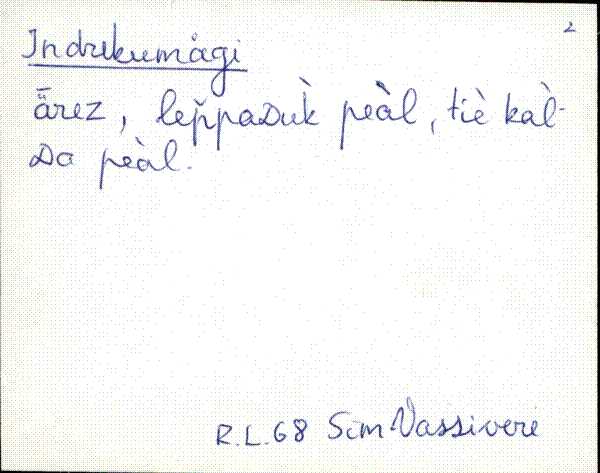 2
Indrikumägi
ärez, leppaDuk̀ peàl, tiè kal̀-
Da peàl.
R.L.68 Sim Vassivere